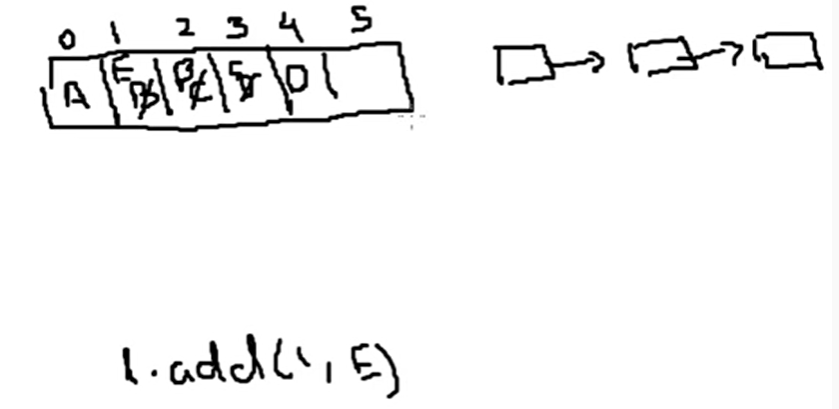 0 1 2 3 4 5
A E B C D
l.add(1, E)